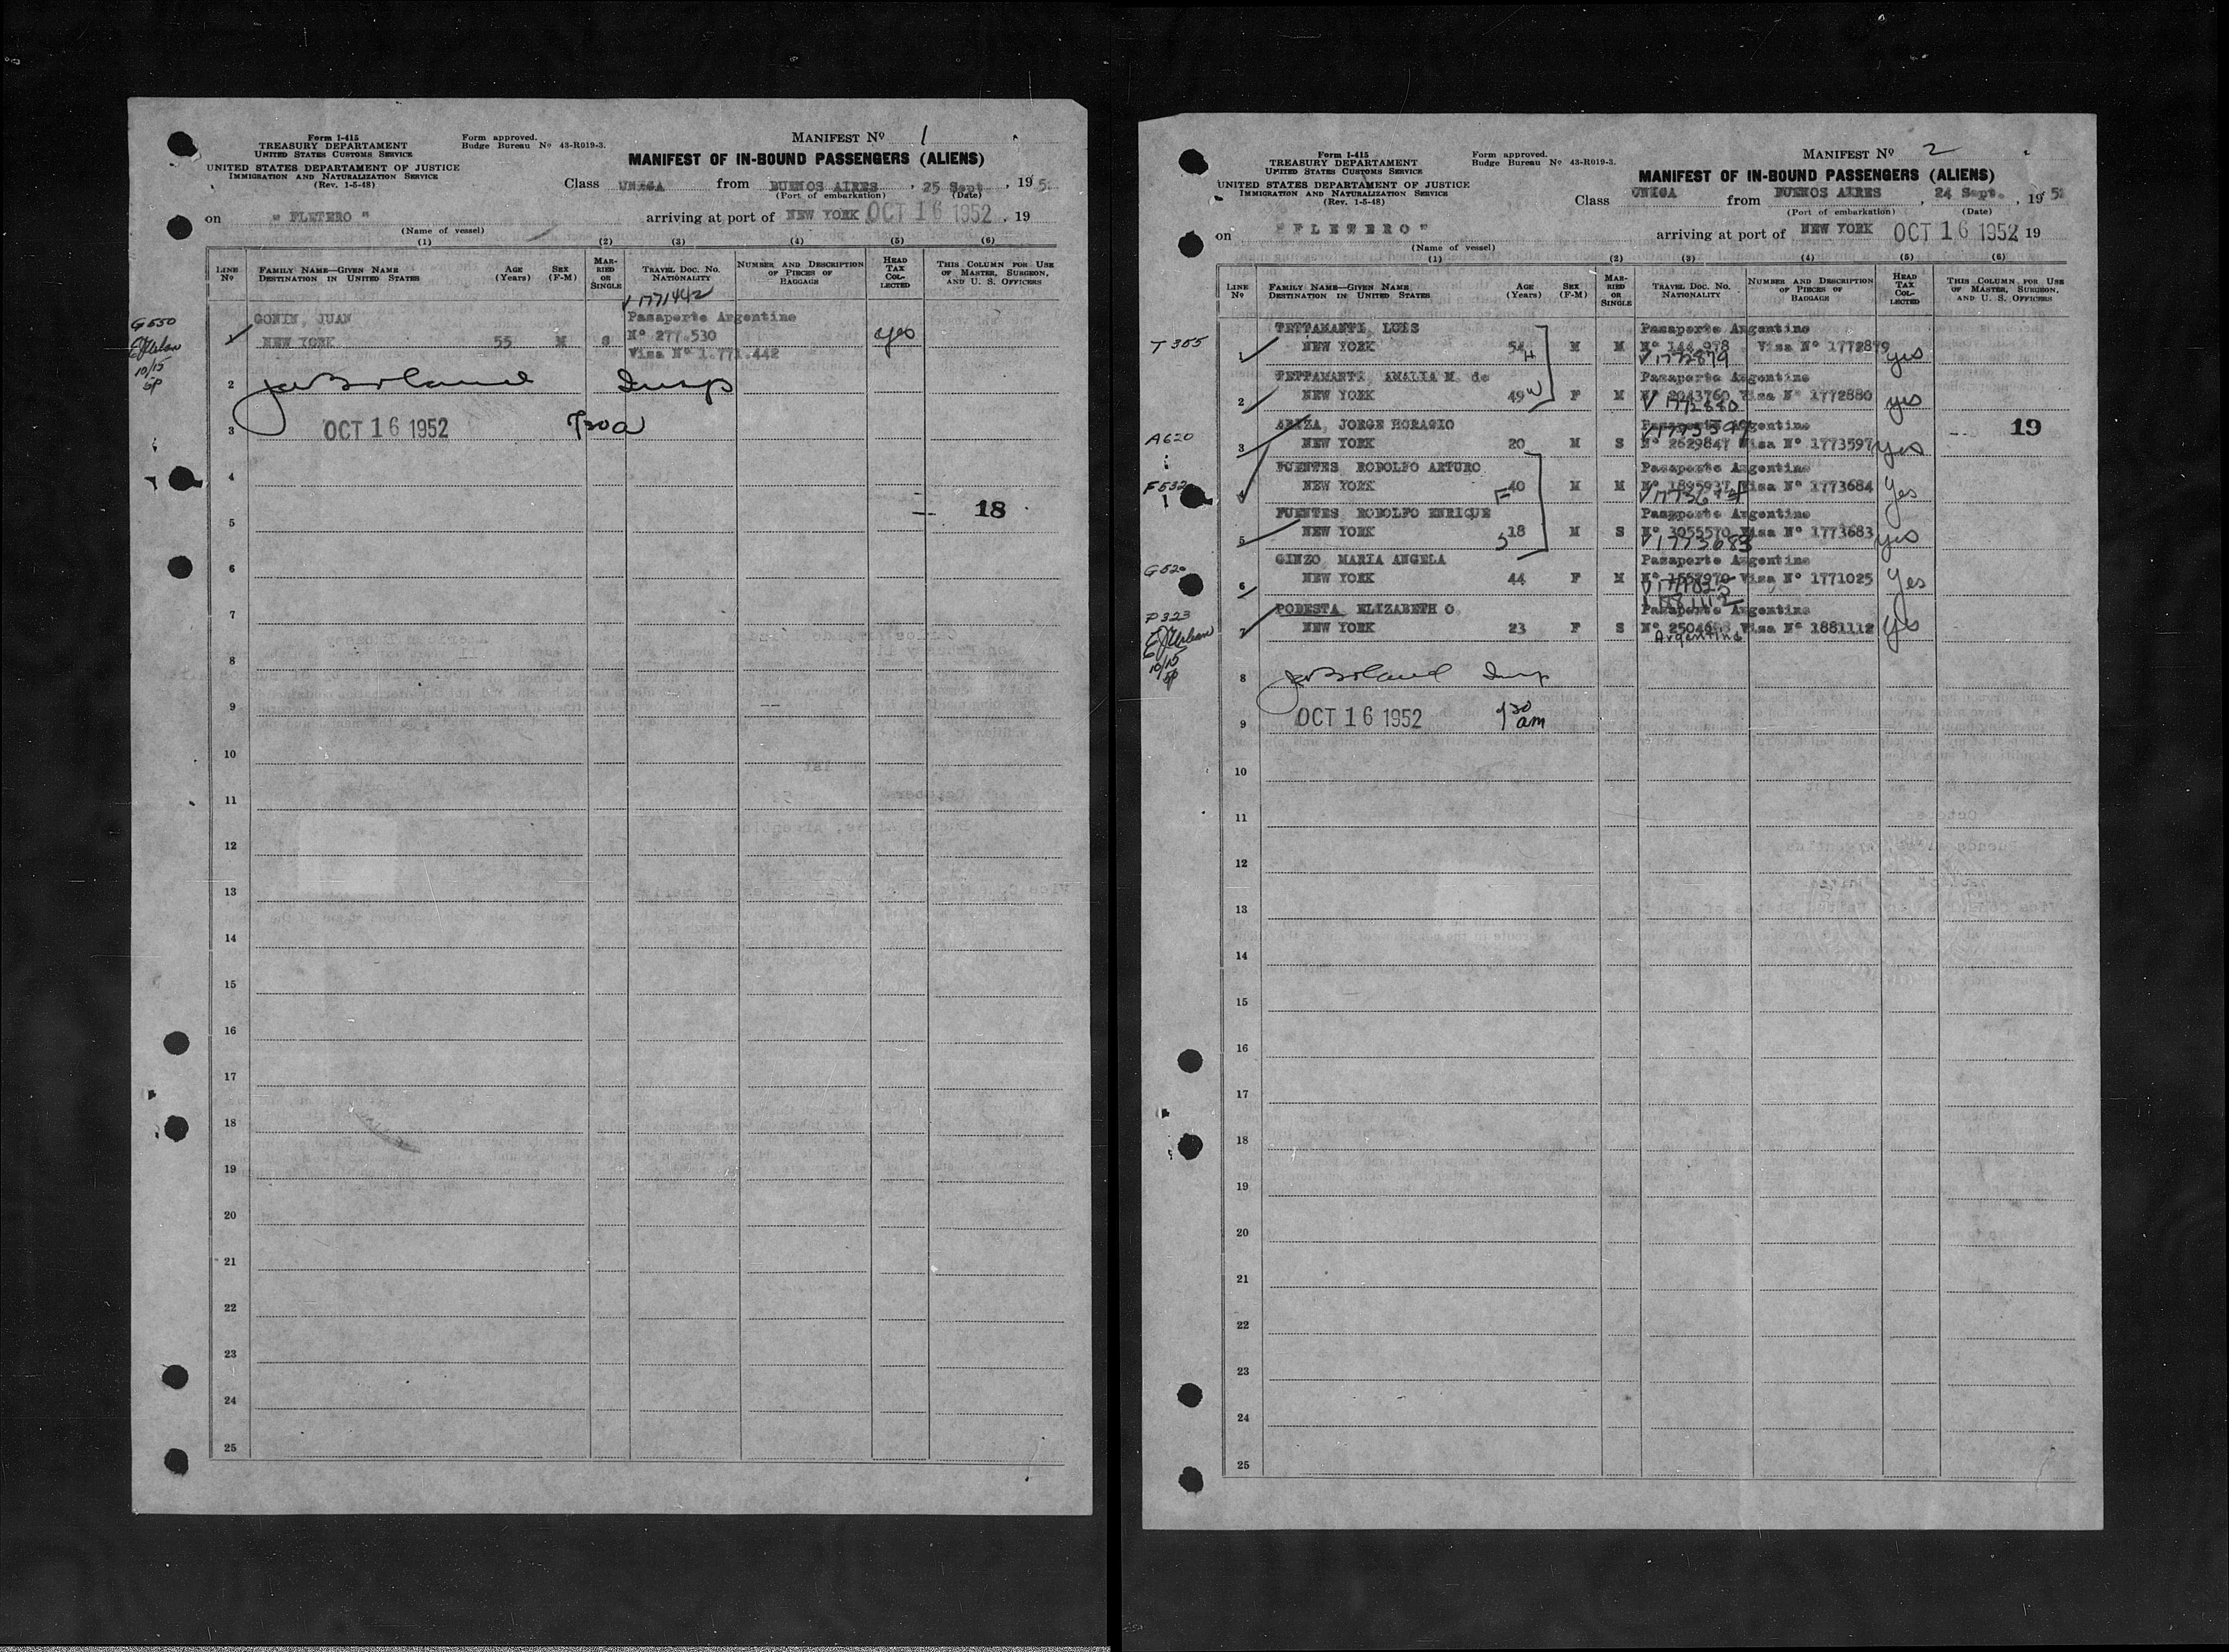 Form I-415
TREASURY DEPARTAMENT
UNITED STATES CUSTOMS SERVICE
UNITED STATES DEPARTAMENT OF JUSTICE
IMMIGRATION AND NATURALIZATION SERVICE
(Rev. 1-5-48)
Form approved.
Budge Bureau Nº 43-R019-3.
MANIFEST Nº 1
MANIFEST OF IN-BOUND PASSENGERS (ALIENS)
Class UNICA from BUENOS AIRES , 25 Sept , 19 52
(Port of embarkation) (Date)
on " FLETERO " arriving at port of NEW YORK OCT 16 1952 , 19
(Name of vessel)
(1) (2) (3) (4) (5) (6)
LINE Nº
FAMILY NAME—GIVEN NAME DESTINATION IN UNITED STATES
AGE (Years)
SEX (F-M)
MARRIED OR SINGLE
TRAVEL DOC. No. NATIONALITY
NUMBER AND DESCRIPTION OF PIECES OF BAGGAGE
HEAD TAX COLLECTED
THIS COLUMN FOR USE OF MASTER, SURGEON, AND U. S. OFFICERS
V 1771442
G550
GONIN, JUAN Pasaporte Argentino
NEW YORK 55 M S Nº 277.530 yes
Visa Nº 1.771.442
10/15
2 Insp
3 OCT 16 1952 730a
4
5 18
6
7
8
9
10
11
12
13
14
15
16
17
18
19
20
21
22
23
24
25
Form I-415
TREASURY DEPARTAMENT
UNITED STATES CUSTOMS SERVICE
UNITED STATES DEPARTAMENT OF JUSTICE
IMMIGRATION AND NATURALIZATION SERVICE
(Rev. 1-5-48)
Form approved.
Budge Bureau Nº 43-R019-3.
MANIFEST Nº 2
MANIFEST OF IN-BOUND PASSENGERS (ALIENS)
Class UNICA from BUENOS AIRES , 24 Sept. , 19 52
(Port of embarkation) (Date)
on " F L E T E R O " arriving at port of NEW YORK OCT 16 1952 19
(Name of vessel)
(1) (2) (3) (4) (5) (6)
LINE Nº
FAMILY NAME—GIVEN NAME DESTINATION IN UNITED STATES
AGE (Years)
SEX (F-M)
MARRIED OR SINGLE
TRAVEL DOC. No. NATIONALITY
NUMBER AND DESCRIPTION OF PIECES OF BAGGAGE
HEAD TAX COLLECTED
THIS COLUMN FOR USE OF MASTER, SURGEON, AND U. S. OFFICERS
TETTAMANTI, LUIS Pasaporte Argentino
T355 1 NEW YORK 54 H M M Nº 144.978 Visa Nº 1772879 yes
V 1772879
TETTAMANTI, AMALIA M. de Pasaporte Argentino
2 NEW YORK 49 W F M Nº 2043760 Visa Nº 1772880 yes
V 1772880
ARIZA, JORGE HORACIO Pasaporte Argentino
A620 3 NEW YORK 20 M S Nº 2629847 Visa Nº 1773597 yes 19
FUENTES, RODOLFO ARTURO Pasaporte Argentino
F532 4 NEW YORK F 40 M M Nº 1895937 Visa Nº 1773684 yes
V 1773684
FUENTES, RODOLFO ENRIQUE Pasaporte Argentino
5 NEW YORK S 18 M S Nº 3055570 Visa Nº 1773683 yes
V 1773683
GINZO MARIA ANGELA Pasaporte Argentino
G520 6 NEW YORK 44 F M Nº 1557970 Visa Nº 1771025 yes
V 1771025
V 1881112
PODESTA, ELIZABETH O. Pasaporte Argentino
P323 7 NEW YORK 23 F S Visa Nº 1881112 yes
Argentine
10/15
8 Insp
9 OCT 16 1952 730 am
10
11
12
13
14
15
16
17
18
19
20
21
22
23
24
25